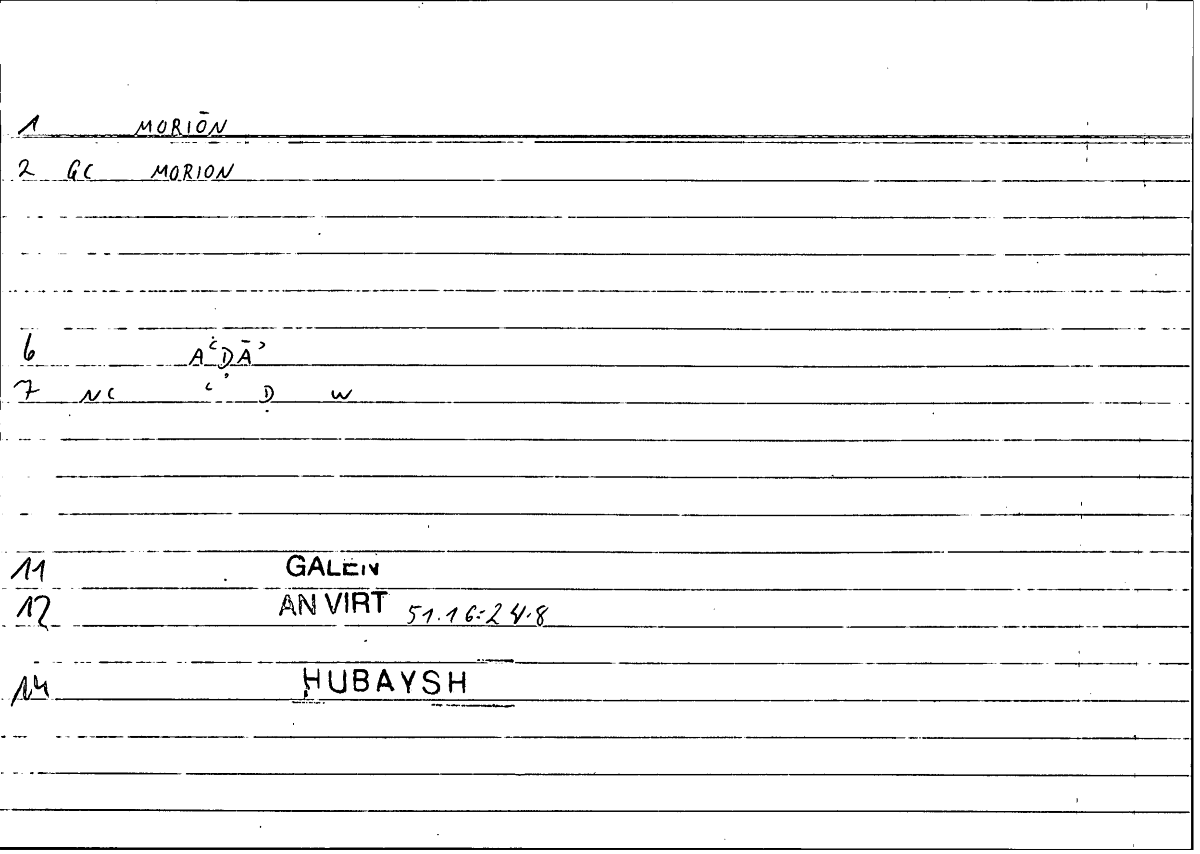 1 MORIŌN
2 GC MORION
6 AʿḌĀʾ
7 NC ʿ Ḍ W
11 GALEN
12 AN VIRT 51.16:24.8
14 ḤUBAYSH